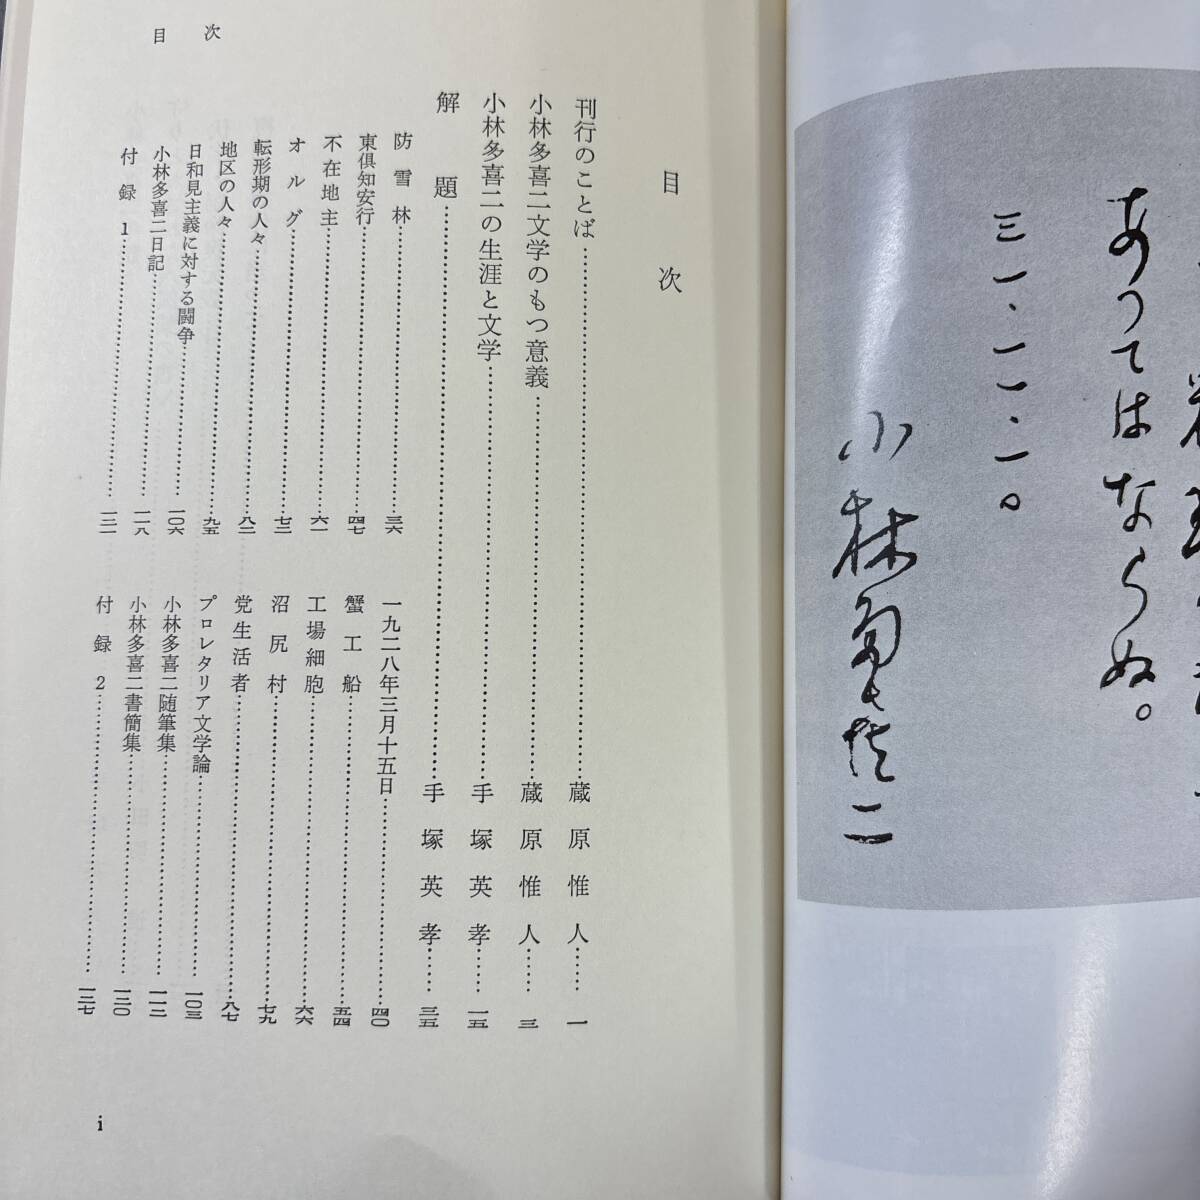 あってはならぬ。
三一・一一・一。
小林多喜二
目次
目次
刊行のことば……蔵原惟人……一
小林多喜二文学のもつ意義……蔵原惟人……三
小林多喜二の生涯と文学……手塚英孝……一五
解題……手塚英孝……三五
防雪林……三六
一九二八年三月十五日……四〇
東倶知安行……四七
蟹工船……五四
不在地主……六一
工場細胞……六六
オルグ……七三
沼尻村……七九
転形期の人々……八二
党生活者……八七
地区の人々……九五
プロレタリア文学論……一〇三
日和見主義に対する闘争……一〇六
小林多喜二随筆集……一一二
小林多喜二日記……一一八
小林多喜二書簡集……一二〇
付録1……一二一
付録2……一二七
i